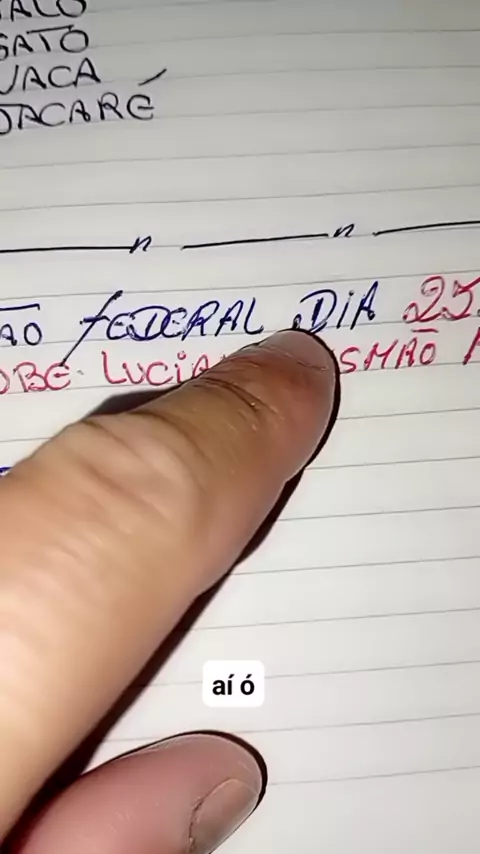 GATO
VACA
JACARÉ
ÃO FEDERAL DIA 25
OBÉ. LUCIA SMAÕ
aí ó